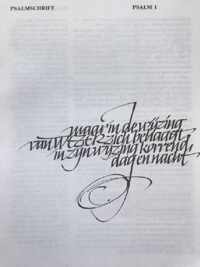 PSALMSCHRIFT PSALM 1
maar in de wijzing
van WEZER zich behaagt
in zijn wijzing korrend,
dag en nacht